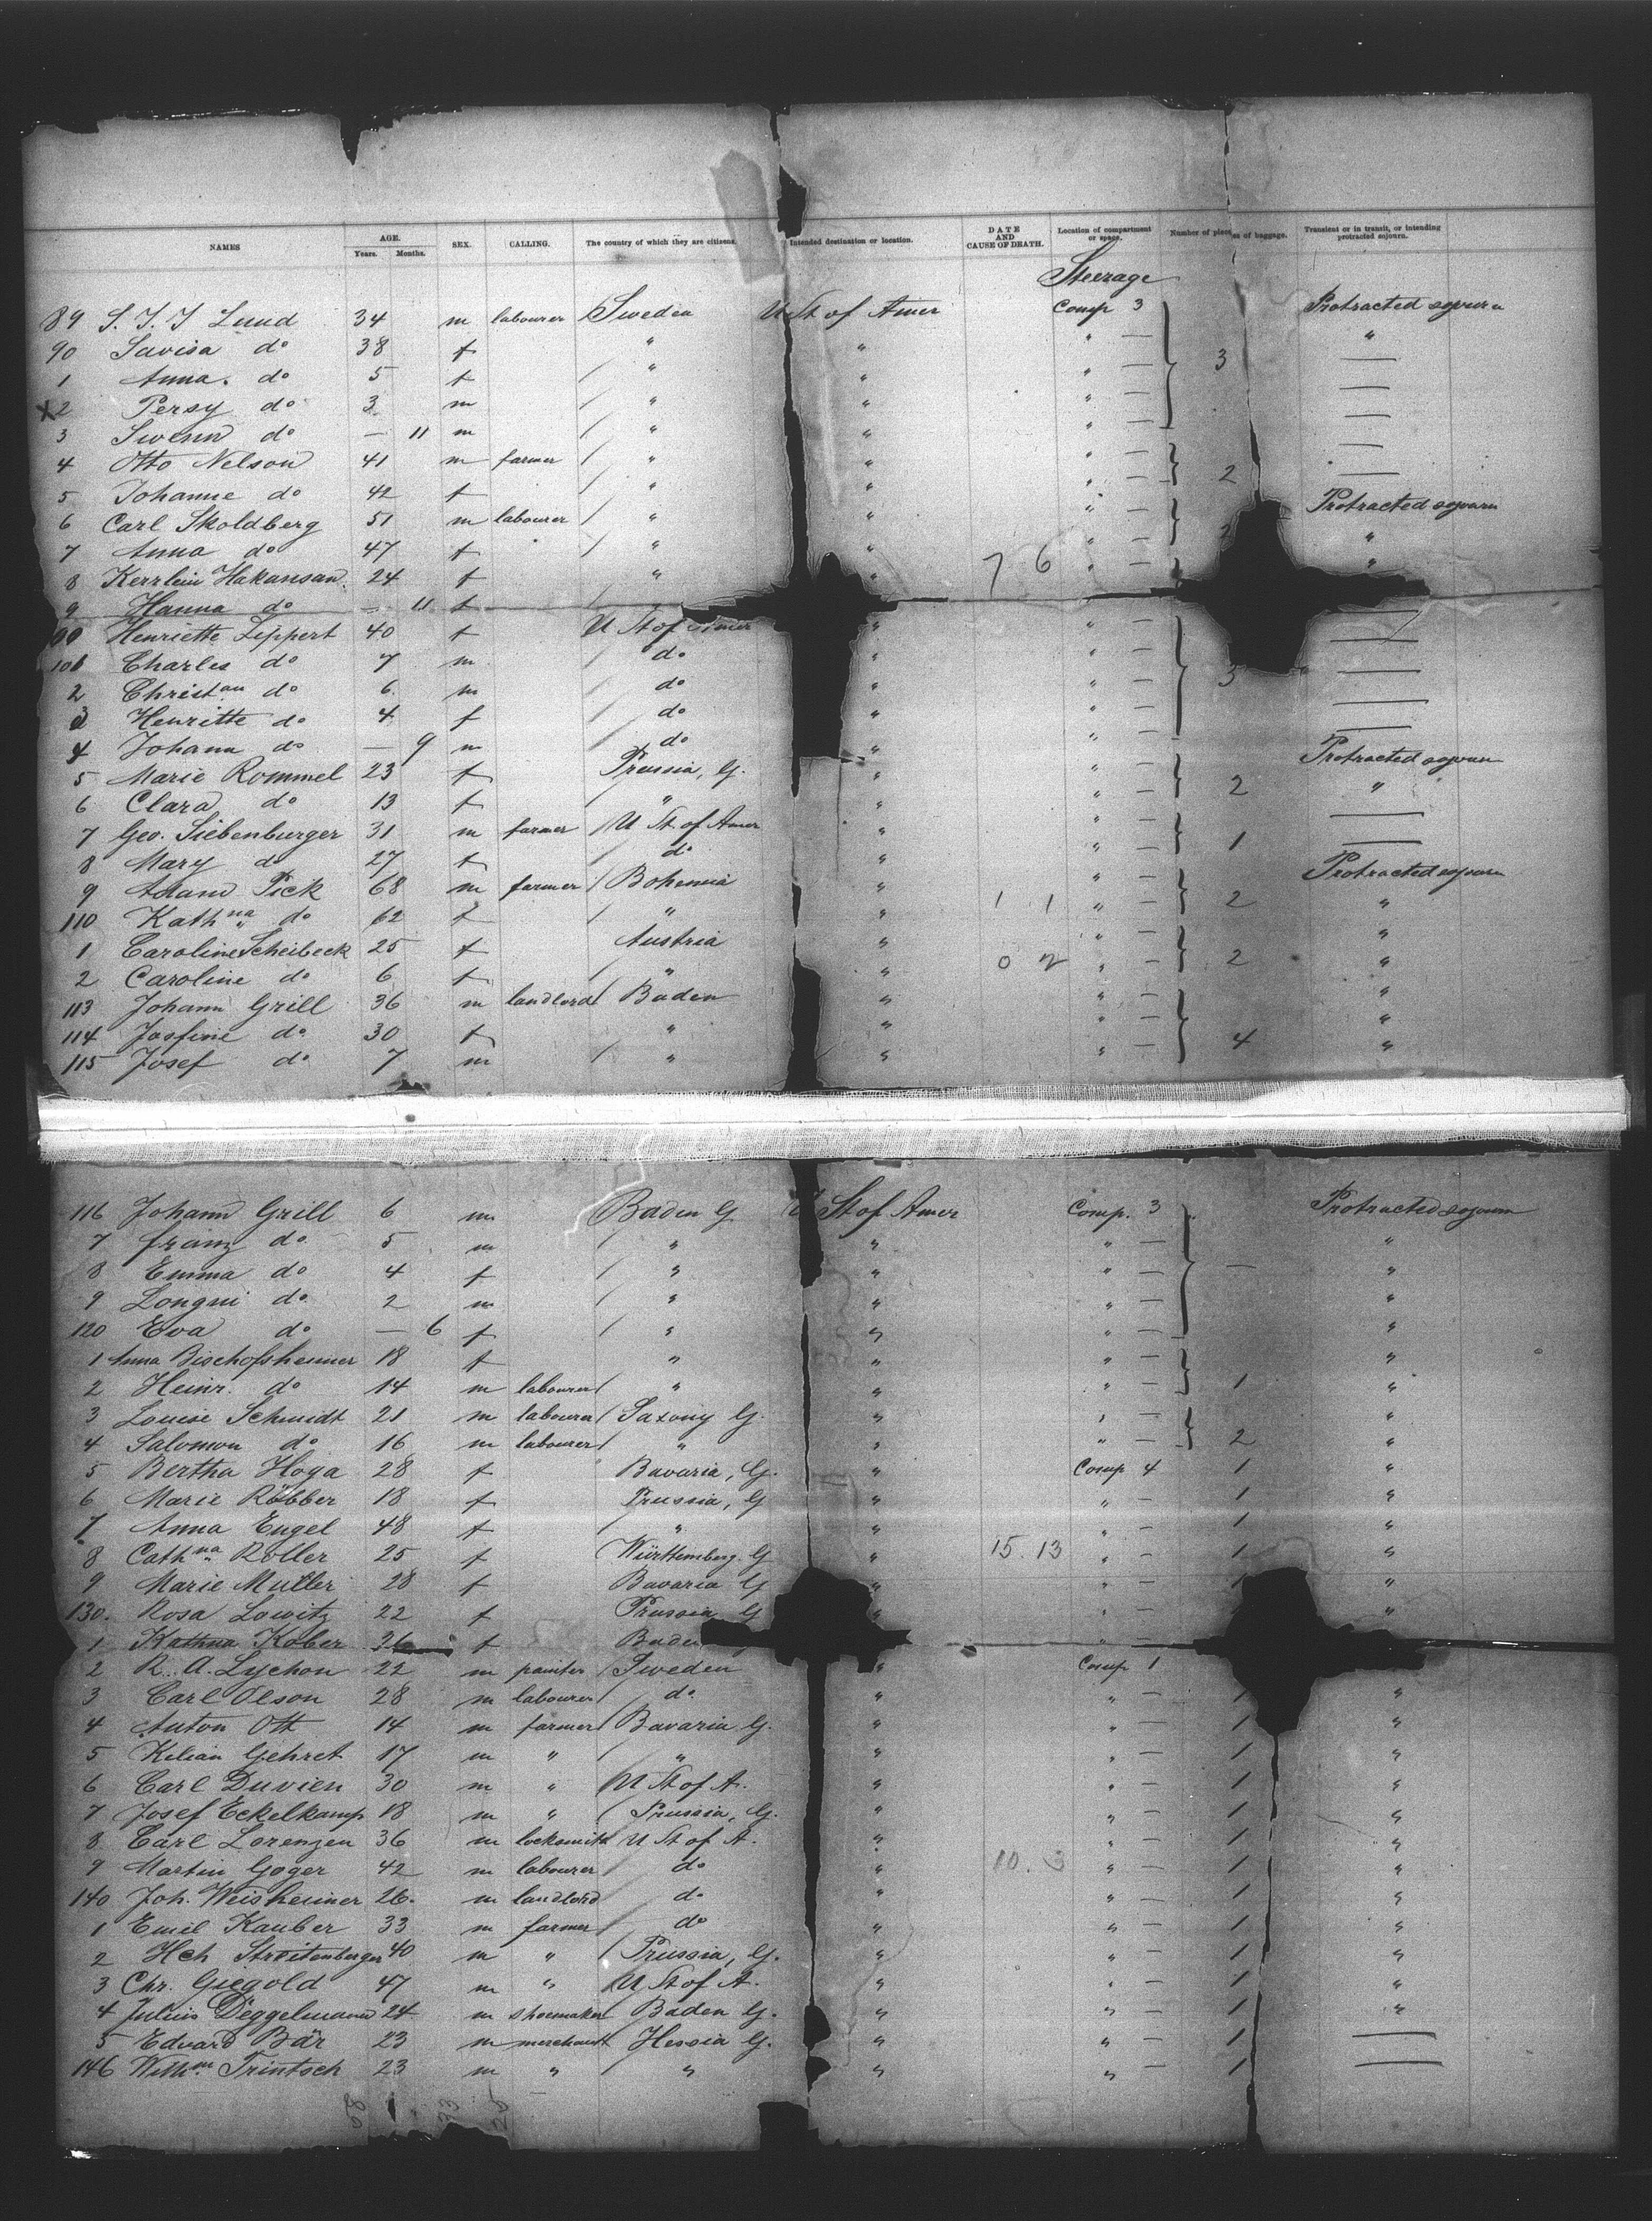 NAMES AGE. Years. Months. SEX. CALLING. The country of which they are citizens. Intended destination or location. DATE AND CAUSE OF DEATH. Location of compartment or space. Number of pieces of baggage. Transient or in transit, or intending protracted sojourn.
Steerage
89 S. J. J Lund 34 m labourer Sweden U St of Amer Comp 3 Protracted sojourn
90 Lavisa do 38 f " " " — "
1 Anna. do 5 f / " " " — 3 —
X2 Persy do 3 m / " " " — —
3 Swenn do — 11 m / " " " — —
4 Otto Nelson 41 m farmer / " " " — —
5 Johanne do 42 f / " " " — 2 —
6 Carl Skoldberg 51 m labourer / " " " — Protracted sojourn
7 Anna do 47 f / " " " — 2 "
8 Kerrlein Hakansan. 24 f " " 7 6 " — "
9 Hanna do — 11 f /
100 Henriette Lippert 40 f U St of Amer " " — —
101 Charles do 7 m / do " " — —
2 Christan do 6 m / do " " — 3 —
3 Henritte do 4 f / do " " — —
4 Johann do — 9 m / do " " — —
5 Marie Rommel 23 f Prussia, G. " " — Protracted sojourn
6 Clara do 13 f / " " " — 2 "
7 Geo. Siebenburger 31 m farmer / U St. of Amer " " — —
8 Mary do 27 f / do " " — 1 —
9 Adam Pick 68 m farmer / Bohemia " " — Protracted sojourn
110 Kathna do 62 f / " " 1 1 " — 2 "
1 Caroline Scheibeck 25 f Austria " " — "
2 Caroline do 6 f / " " 0 2 " — 2 "
113 Johann Grill 36 m landlord / Baden " " — "
114 Josfine do 30 f " " " — "
115 Josef do 7 m / " " " — 4 "
116 Johann Grill 6 m Baden G U St of Amer Comp. 3 Protracted sojourn
7 franz do 5 m / " " " — "
8 Emma do 4 f / " " " — — "
9 Longni do 2 m / " " " — "
120 Eva do — 6 f / " " " — "
1 Anna Bischofsheimer 18 f " " " — "
2 Heinr. do 14 m labourer / " " " — 1 "
3 Louise Schmidt 21 m labourer / Saxony G. " " — "
4 Salomon do 16 m labourer / " " " — 2 "
5 Bertha Hoga 28 f Bavaria, G. " Comp 4 1 "
6 Marie Röbber 18 f Prussia, G " " — 1 "
7 Anna Engel 48 f / " " " — 1 "
8 Cathna Roller 25 f Württemberg. G " 15. 13 " — 1 "
9 Marie Muller 28 f Bavaria G " " — 1 "
130. Rosa Lowitz 22 f Prussia G " " — "
1 Kathna Kober 26 f Baden
2 R. A. Lychon 22 m painter / Sweden " Comp 1
3 Carl Olson 28 m labourer / do " " — 1 "
4 Anton Ott 14 m farmer / Bavaria G. " " — 1 "
5 Kilian Gehret 17 m " / " " " — 1 "
6 Carl Duvien 30 m " / U St of A. " " — 1 "
7 Josef Eckelkamp 18 m " / Prussia, G. " " — 1 "
8 Carl Lorenzen 36 m locksmith U St of A. " " — 1 "
9 Martin Goger 42 m labourer / do " 10. 3 " — 1 "
140 Joh. Weisheimer 26. m landlord do " " — 1 "
1 Emil Kauber 33 m farmer / do " " — 1 "
2 Hch Streitenberger 40 m " / Prussia, G. " " — 1 "
3 Chr. Giegold 47 m " / U St of A. " " — 1 "
4 Julius Deggelmann 24 m shoemaker / Baden G. " " — 1 "
5 Edvard Bär 23 m merchant Hessia G. " " — 1 —
146 Willm. Trintsch 23 m " / " " " — 1 —